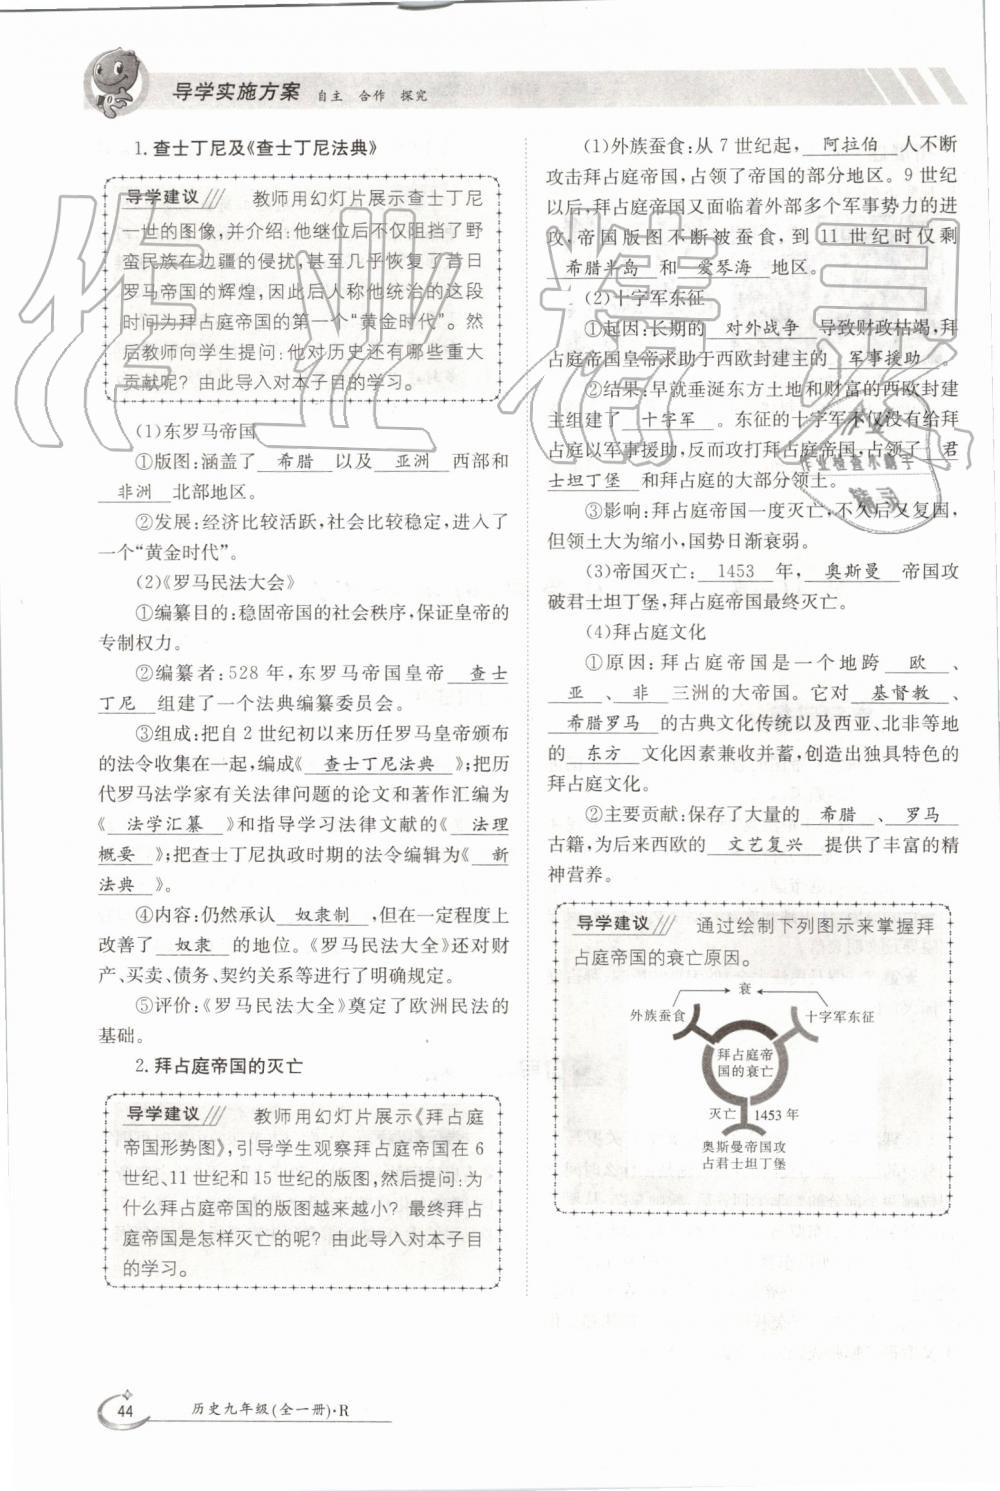 导学实施方案 自主 合作 探究
1. 查士丁尼及《查士丁尼法典》
导学建议 教师用幻灯片展示查士丁尼
一世的图像,并介绍:他继位后不仅阻挡了野
蛮民族在边疆的侵扰,甚至几乎恢复了昔日
罗马帝国的辉煌,因此后人称他统治的这段
时间为拜占庭帝国的第一个“黄金时代”。然
后教师向学生提问:他对历史还有哪些重大
贡献呢?由此导入对本子目的学习。
(1)东罗马帝国
①版图:涵盖了 希腊 以及 亚洲 西部和
非洲 北部地区。
②发展:经济比较活跃,社会比较稳定,进入了
一个“黄金时代”。
(2)《罗马民法大会》
①编纂目的:稳固帝国的社会秩序,保证皇帝的
专制权力。
②编纂者:528 年,东罗马帝国皇帝 查士
丁尼 组建了一个法典编纂委员会。
③组成:把自 2 世纪初以来历任罗马皇帝颁布
的法令收集在一起,编成《 查士丁尼法典 》;把历
代罗马法学家有关法律问题的论文和著作汇编为
《 法学汇纂 》和指导学习法律文献的《 法理
概要 》;把查士丁尼执政时期的法令编辑为《 新
法典 》。
④内容:仍然承认 奴隶制 ,但在一定程度上
改善了 奴隶 的地位。《罗马民法大全》还对财
产、买卖、债务、契约关系等进行了明确规定。
⑤评价:《罗马民法大全》奠定了欧洲民法的
基础。
2. 拜占庭帝国的灭亡
导学建议 教师用幻灯片展示《拜占庭
帝国形势图》,引导学生观察拜占庭帝国在 6
世纪、11 世纪和 15 世纪的版图,然后提问:为
什么拜占庭帝国的版图越来越小?最终拜占
庭帝国是怎样灭亡的呢?由此导入对本子目
的学习。
(1)外族蚕食:从 7 世纪起, 阿拉伯 人不断
攻击拜占庭帝国,占领了帝国的部分地区。9 世纪
以后,拜占庭帝国又面临着外部多个军事势力的进
攻,帝国版图不断被蚕食,到 11 世纪时仅剩
希腊半岛 和 爱琴海 地区。
(2)十字军东征
①起因:长期的 对外战争 导致财政枯竭,拜
占庭帝国皇帝求助于西欧封建主的 军事援助。
②结果:早就垂涎东方土地和财富的西欧封建
主组建了 十字军 。东征的十字军不仅没有给拜
占庭以军事援助,反而攻打拜占庭帝国,占领了 君
士坦丁堡 和拜占庭的大部分领土。
③影响:拜占庭帝国一度灭亡,不久后又复国,
但领土大为缩小,国势日渐衰弱。
(3)帝国灭亡: 1453 年, 奥斯曼 帝国攻
破君士坦丁堡,拜占庭帝国最终灭亡。
(4)拜占庭文化
①原因:拜占庭帝国是一个地跨 欧 、
亚 、 非 三洲的大帝国。它对 基督教 、
希腊罗马 的古典文化传统以及西亚、北非等地
的 东方 文化因素兼收并蓄,创造出独具特色的
拜占庭文化。
②主要贡献:保存了大量的 希腊 、 罗马
古籍,为后来西欧的 文艺复兴 提供了丰富的精
神营养。
导学建议 通过绘制下列图示来掌握拜
占庭帝国的衰亡原因。
衰
外族蚕食 十字军东征
拜占庭帝
国的衰亡
灭亡 1453 年
奥斯曼帝国攻
占君士坦丁堡
44 历史九年级(全一册)·R
作业精灵
作业检查小助手
精灵